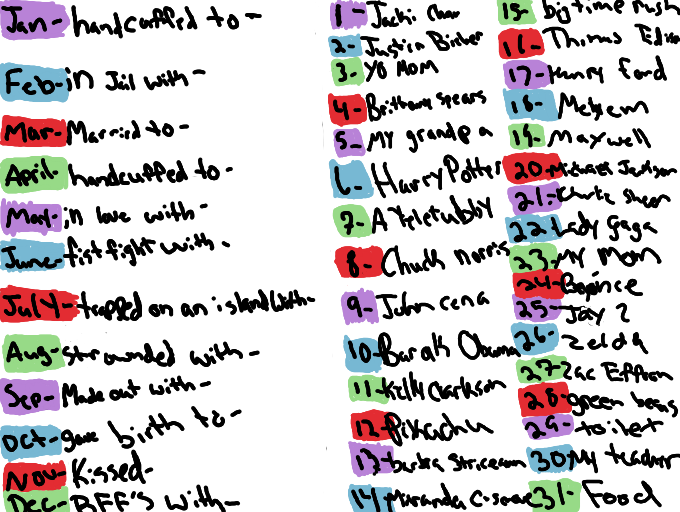 Jan- handcuffed to-
Feb- in Jail with-
Mar- Married to-
April- handcuffed to-
May- in love with-
June- fist fight with-
July- trapped on an island with-
Aug- strounded with-
Sep- Made out with-
Oct- gave birth to-
Nov- Kissed-
Dec- BFF's with-
1- Jacki Chan
2- Justin Bieber
3- YO MOM
4- Brittany Spears
5- My grandpa
6- Harry Potter
7- A Teletubby
8- Chuck Norris
9- John cena
10- Barak Obama
11- Kelly Clarkson
12- Pikachu
13-
14- Miranda Cosgrove
15- big time rush
16- Thomas Edison
17- Henry Ford
18-
19- Maxwell
20- Michael Jackson
21- Charlie Sheen
22- Lady Gaga
23- My Mom
24-
25- Jay Z
26- Zelda
27- Zac Effron
28- green beans
29- toilet
30- My teacher
31- Food